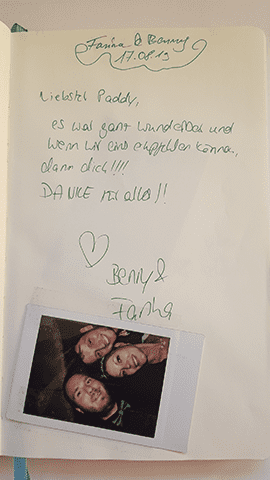 Farina & Benny
17.08.19
Liebster Paddy,
es war ganz wunderbar und
wenn wir eins empfehlen können,
dann dich!!!!
DANKE für alles!!
Benny &
Farina